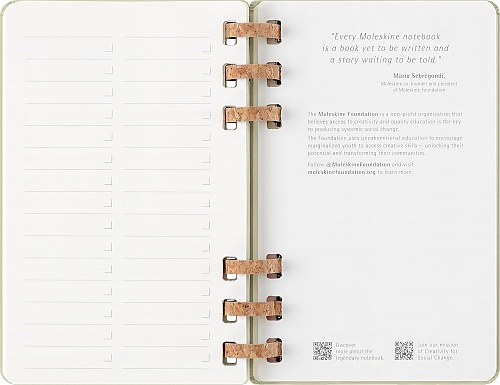 "Every Moleskine notebook
is a book yet to be written and
a story waiting to be told."
Maria Sebregondi,
Moleskine co-founder and president
of Moleskine Foundation
The Moleskine Foundation is a non-profit organization that
believes access to creativity and quality education is the key
to producing systemic social change.
The Foundation uses unconventional education to encourage
marginalized youth to access creative skills – unlocking their
potential and transforming their communities.
Follow @MoleskineFoundation and visit
moleskinefoundation.org to learn more.
Discover
more about the
legendary notebook.
Join our mission
of Creativity for
Social Change.